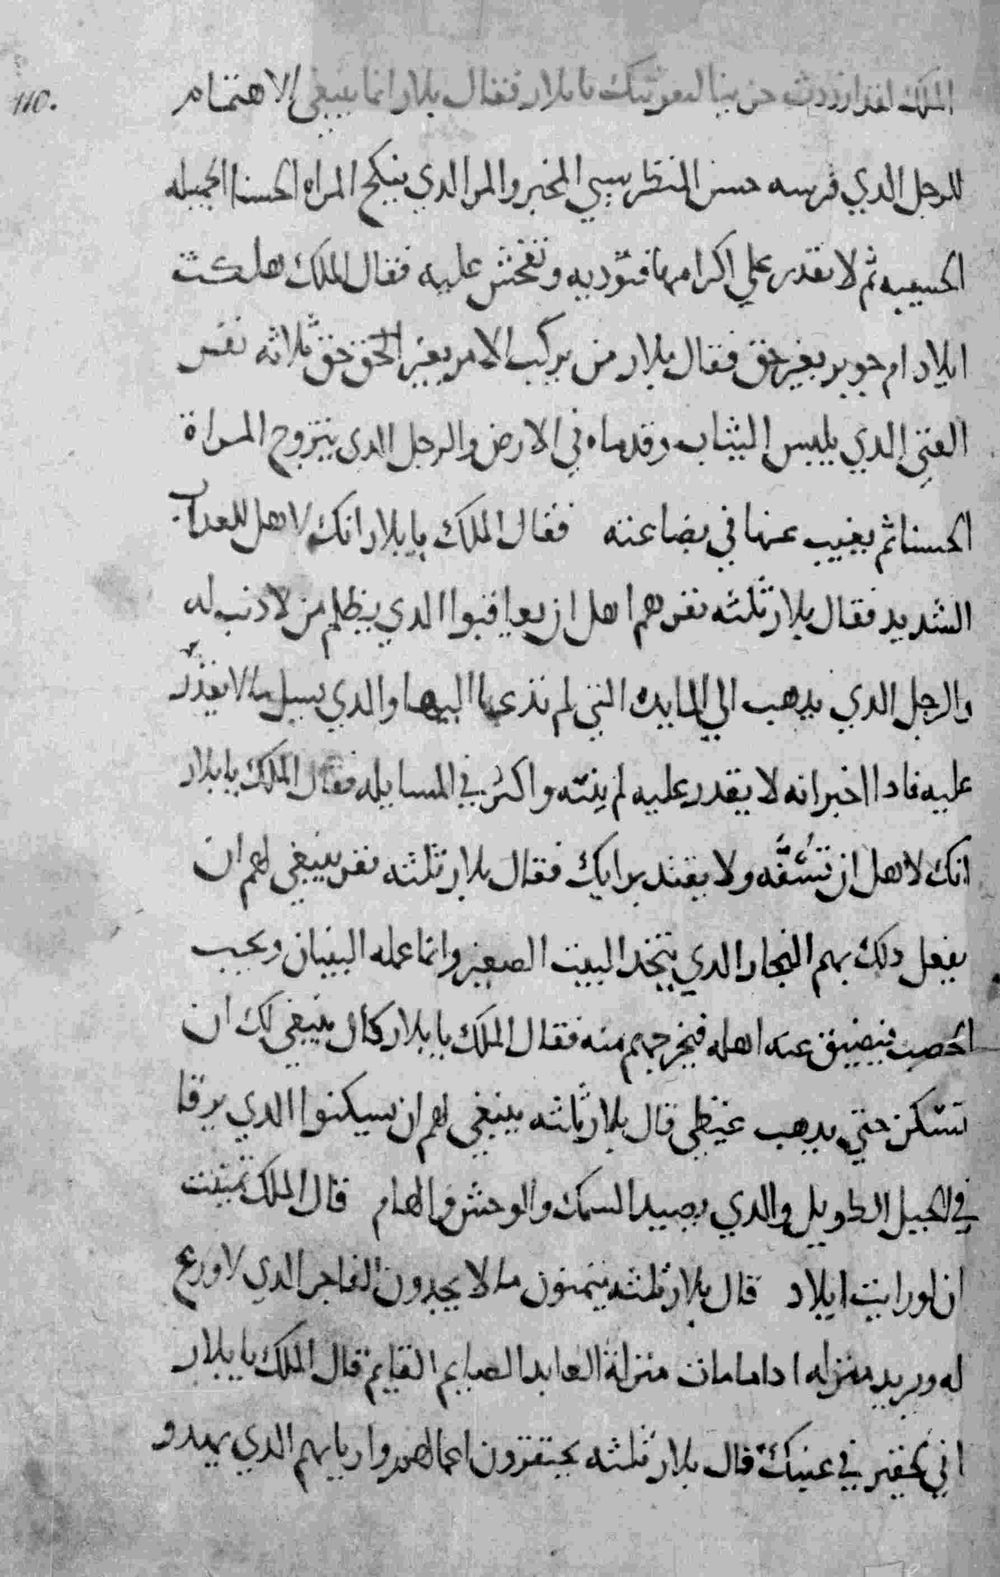 110.
الملك لقد ازددت حزينا لموتك يا بلار فقال بلار انما ينبغي الاهتمام
للرجل الدي فرسه حسن المنظر سيي المخبر والمرا الدي ينكح المراه الحسنا الجميله
الحسيبه ثم لا يقدر علي اكرامها فتوديه وتفحش عليه فقال الملك هلكت
ايلاد ام جوير بغير حق فقال بلار من يركب الامر بغير الحق حق ثلاثه نفر
الفتي الدي يلبس الثياب وقدماه في الارض والرجل الدي يتزوج المراة
الحسنا ثم يغيب عنها في بضاعته فقال الملك يا بلار انك لاهل للعداب
الشديد فقال بلار ثلثه نفر هم اهل ان يعاقبوا الدي يظلم من لا دنب له
والرجل الدي يدهب الي المايده التي لم تدعا اليها والدي يسل ما لا يقدر
عليه فادا اخبر انه لا يقدر عليه لم ينته واكثر في المسايله فقال الملك يا بلار
انك لاهل ان تسفه ولا يقتد برايك فقال بلار ثلثه نفر ينبغي لهم ان
يفعل دلك بهم النجار الدي يتخد البيت الصغير وانما عمله البنيان ويجيب
الخصب فيضيق عنه اهله فيخرجهم منه فقال الملك يا بلار كان ينبغي لك ان
تسكن حتي يدهب غيظي قال بلار ثلثه ينبغي لهم ان يسكنوا الدي يرقا
في الجبل الطويل والدي يصيد السمك والوحش والهام قال الملك تمنيت
ان لو رايت ايلاد قال بلار ثلثه يتمنون ما لا يجدون الفاجر الدي لا ورع
له ويريد منزله ادا ما مات منزلة العابد الصايم القايم قال الملك يا بلار
اني لحقير في عينك قال بلار ثلثه يحتقرون اعمالهم واربابهم الدي يهدو